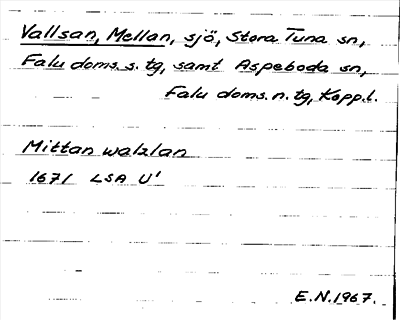 Vallsan, Mellan, sjö, Stora Tuna sn,
Falu doms. s. tg, samt Aspeboda sn,
Falu doms. n. tg, Kopp.l.
Mittan walzlan
1671 LSA U'
E.N.1967.